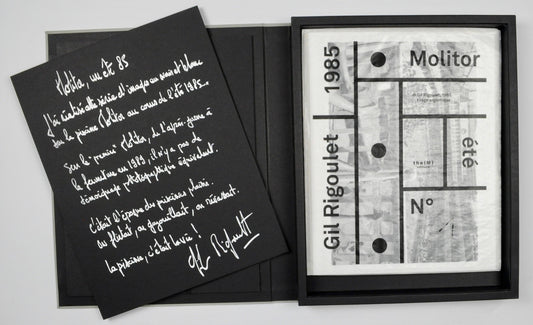 Molitor, un été 85
J'ai réalisé cette série d'images en noir et blanc
sur la piscine Molitor au cours de l'été 1985.
Sur le premier Molitor, de l'après-guerre à
la fermeture en 1989, il n'y a pas de
témoignage photographique équivalent.
C'était l'époque du piscine plaisir.
on flirtait, on
la piscine, c'était la vie !
Gil Rigoulet
1985
Molitor
Gil Rigoulet
été
N°